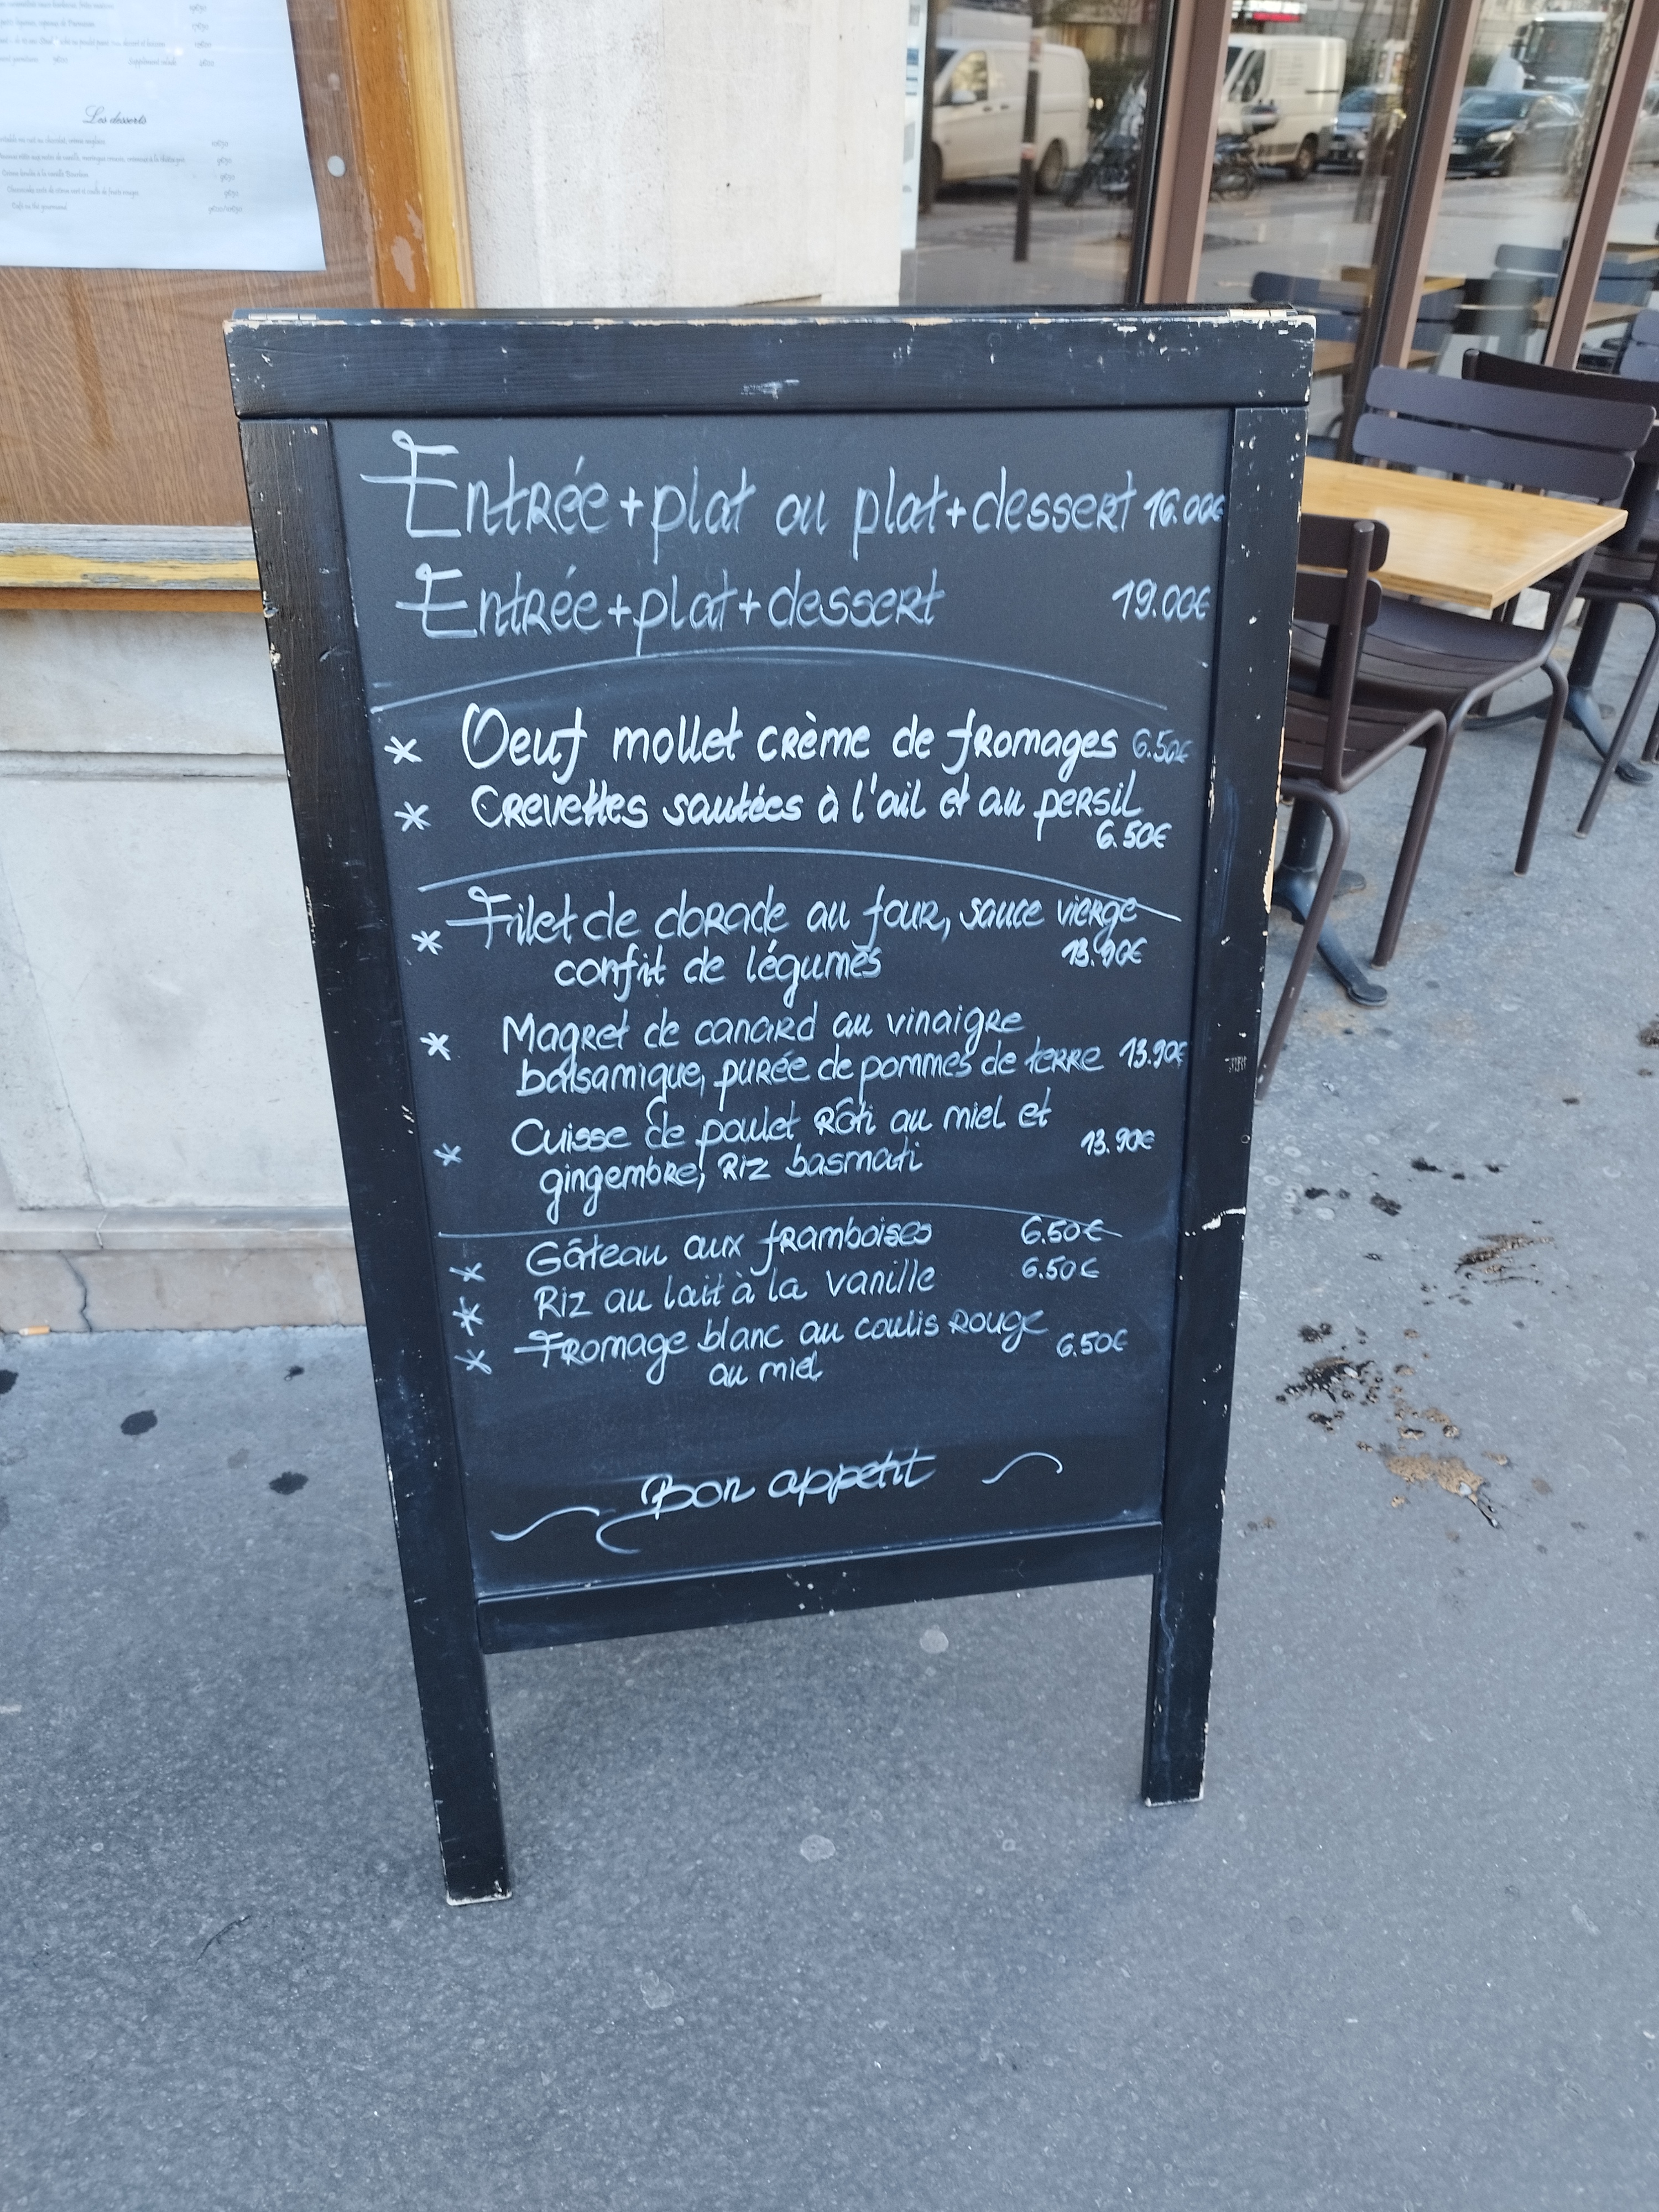 Les desserts
Entrée+plat ou plat+dessert 16.00€
Entrée+plat+dessert 19.00€
* Oeuf mollet crème de fromages 6.50€
* Crevettes sautées à l'ail et au persil
6.50€
* Filet de dorade au four, sauce vierge
confit de légumes 13.90€
* Magret de canard au vinaigre
balsamique, purée de pommes de terre 13.90€
* Cuisse de poulet rôti au miel et
gingembre, riz basmati 13.90€
* Gâteau aux framboises 6.50€
* Riz au lait à la vanille 6.50€
* Fromage blanc au coulis rouge 6.50€
au miel
Bon appétit